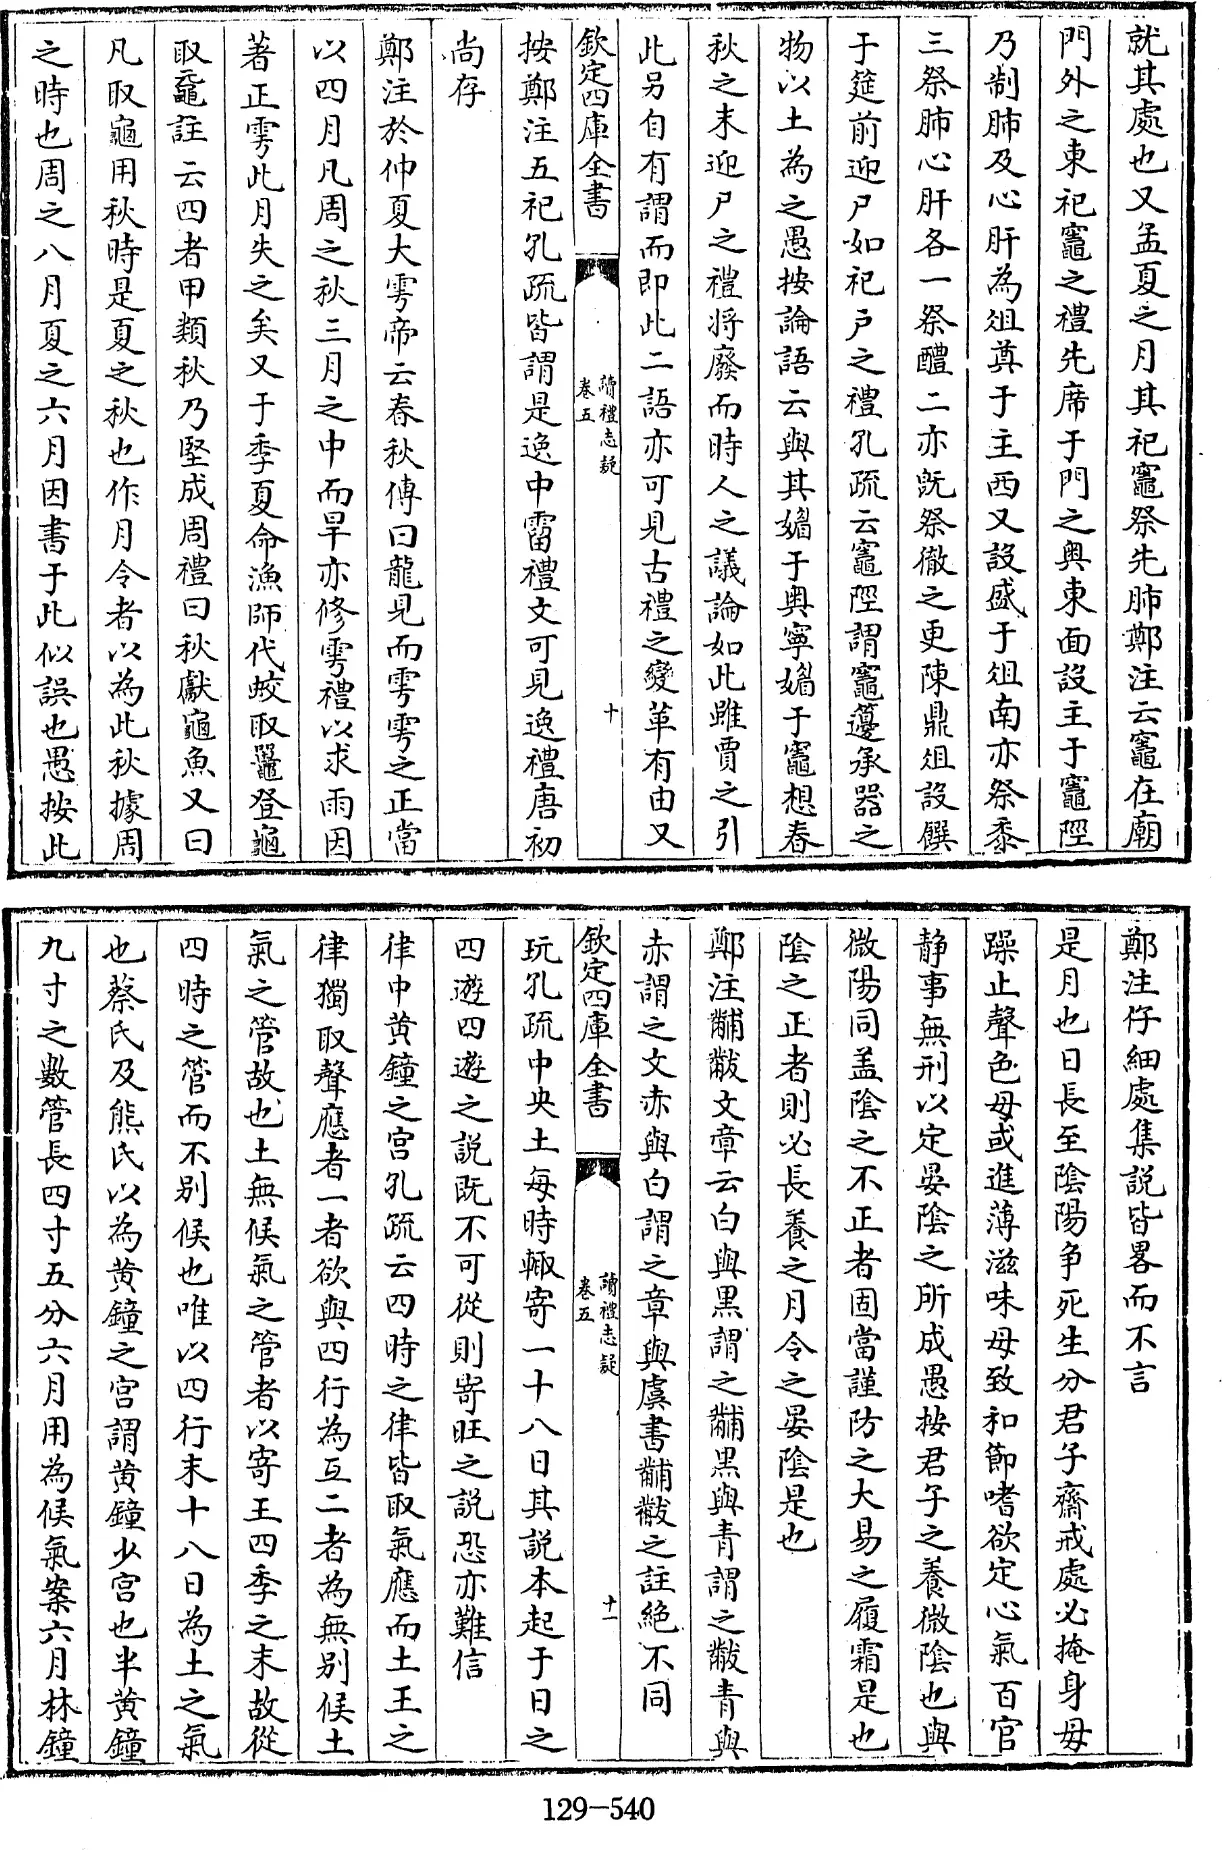 就其處也又孟夏之月其祀竈祭先肺鄭注云竈在廟
門外之東祀竈之禮先席于門之奥東面設主于竈陘
乃制肺及心肝為俎奠于主西又設盛于俎南亦祭黍
三祭肺心肝各一祭醴二亦既祭徹之更陳鼎俎設饌
于筵前迎尸如祀户之禮孔疏云竈陘謂竈邊承器之
物以土為之愚按論語云與其媚于奥寧媚于竈想春
秋之末迎尸之禮將廢而時人之議論如此雖賈之引
此另自有謂而即此二語亦可見古禮之變革有由又
欽定四庫全書
讀禮志疑
卷五
十
按鄭注五祀孔疏皆謂是逸中霤禮文可見逸禮唐初
尚存
鄭注於仲夏大雩帝云春秋傳曰龍見而雩雩之正當
以四月凡周之秋三月之中而旱亦修雩禮以求雨因
著正雩此月失之矣又于季夏命漁師伐蛟取鼉登龜
取黿註云四者甲類秋乃堅成周禮曰秋獻龜魚又曰
凡取龜用秋時是夏之秋也作月令者以為此秋據周
之時也周之八月夏之六月因書于此似誤也愚按此
鄭注仔細處集説皆畧而不言
是月也日長至陰陽争死生分君子齋戒處必掩身毋
躁止聲色毋或進薄滋味毋致和節嗜欲定心氣百官
静事無刑以定晏陰之所成愚按君子之養微陰也與
微陽同盖陰之不正者固當謹防之大易之履霜是也
陰之正者則必長養之月令之晏陰是也
鄭注黼黻文章云白與黒謂之黼黒與青謂之黻青與
赤謂之文赤與白謂之章與虞書黼黻之註絶不同
欽定四庫全書
讀禮志疑
卷五
十一
玩孔疏中央土每時輙寄一十八日其説本起于日之
四遊四遊之説既不可從則寄旺之説恐亦難信
律中黄鐘之宫孔疏云四時之律皆取氣應而土王之
律獨取聲應者一者欲與四行為互二者為無别候土
氣之管故也土無候氣之管者以寄王四季之末故從
四時之管而不别候也唯以四行末十八日為土之氣
也蔡氏及熊氏以為黄鐘之宫謂黄鐘少宫也半黄鐘
九寸之數管長四寸五分六月用為候氣案六月林鐘
129-540